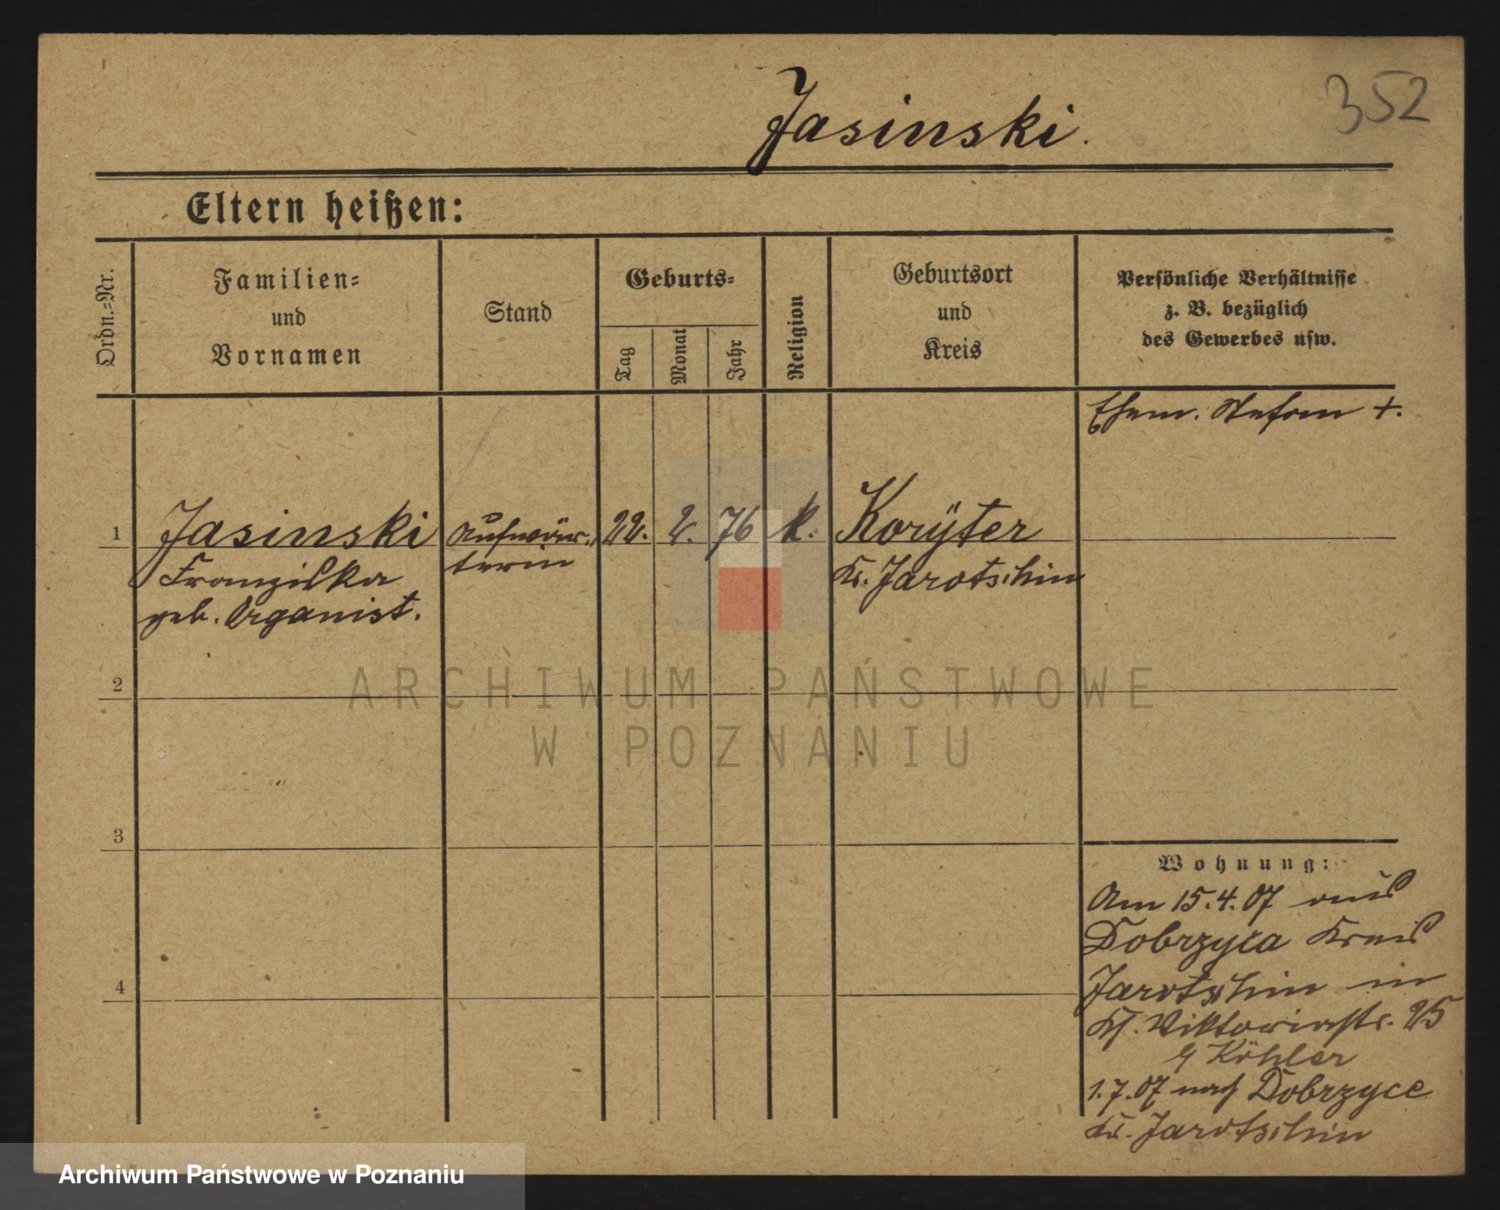 352
Jasinski.
Eltern heißen:
Ordn.-Nr.
Familien-
und
Vornamen
Stand
Geburts-
Tag
Monat
Jahr
Religion
Geburtsort
und
Kreis
Persönliche Verhältnisse
z. B. bezüglich
des Gewerbes usw.
Ehem. Stefan +.
1 Jasinski Aufwär- 22. 2. 76 k. Korÿter
Franziska terin Kr. Jarotschin
geb. Organist.
2
ARCHIWUM PAŃSTWOWE
W POZNANIU
3
Wohnung:
Am 15.4.07 aus
Dobrzyca Kreis
4
Jarotschin in
Viktoriastr. 25
Köhler
1.7.07 nach Dobrzyce
Kr. Jarotschin
Archiwum Państwowe w Poznaniu